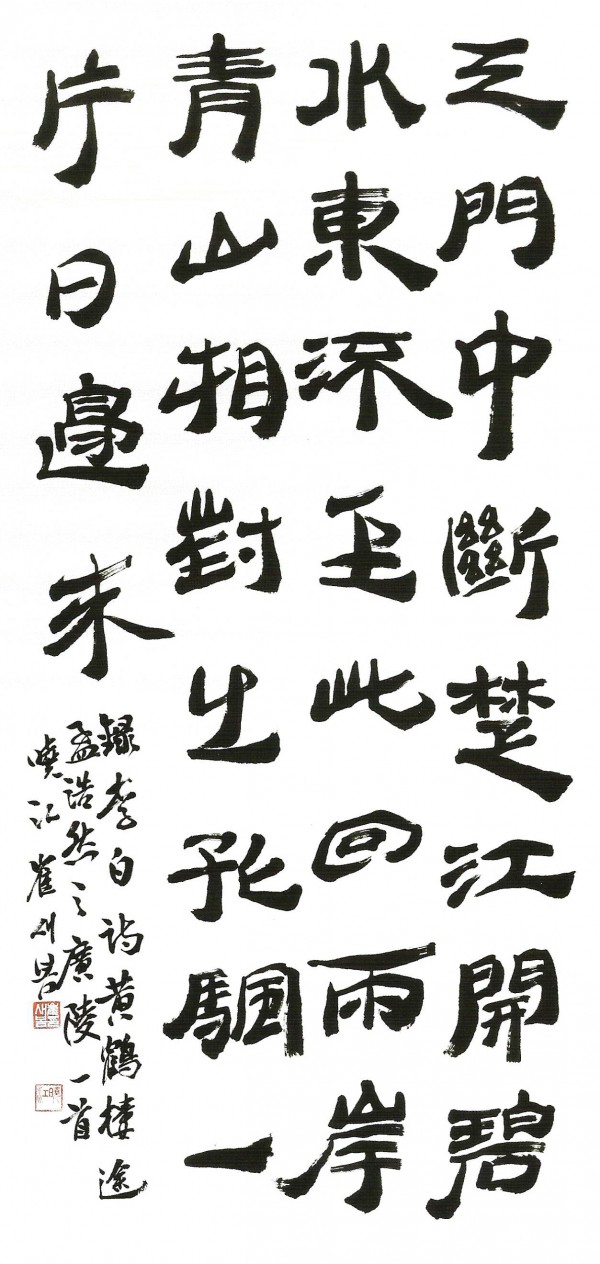 天門中斷楚江開碧
水東流至此回兩岸
青山相對出孤颿一
片日邊來
錄李白詩黃鶴樓送
孟浩然之廣陵一首
曉江崔